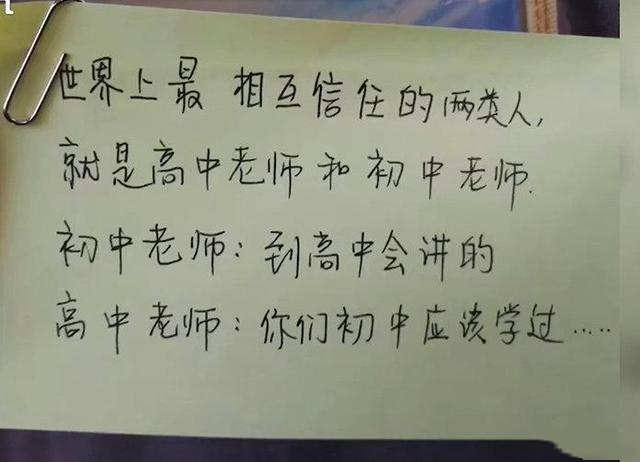 世界上最 相互信任的两类人,
就是高中老师和初中老师.
初中老师:到高中会讲的
高中老师:你们初中应该学过.....